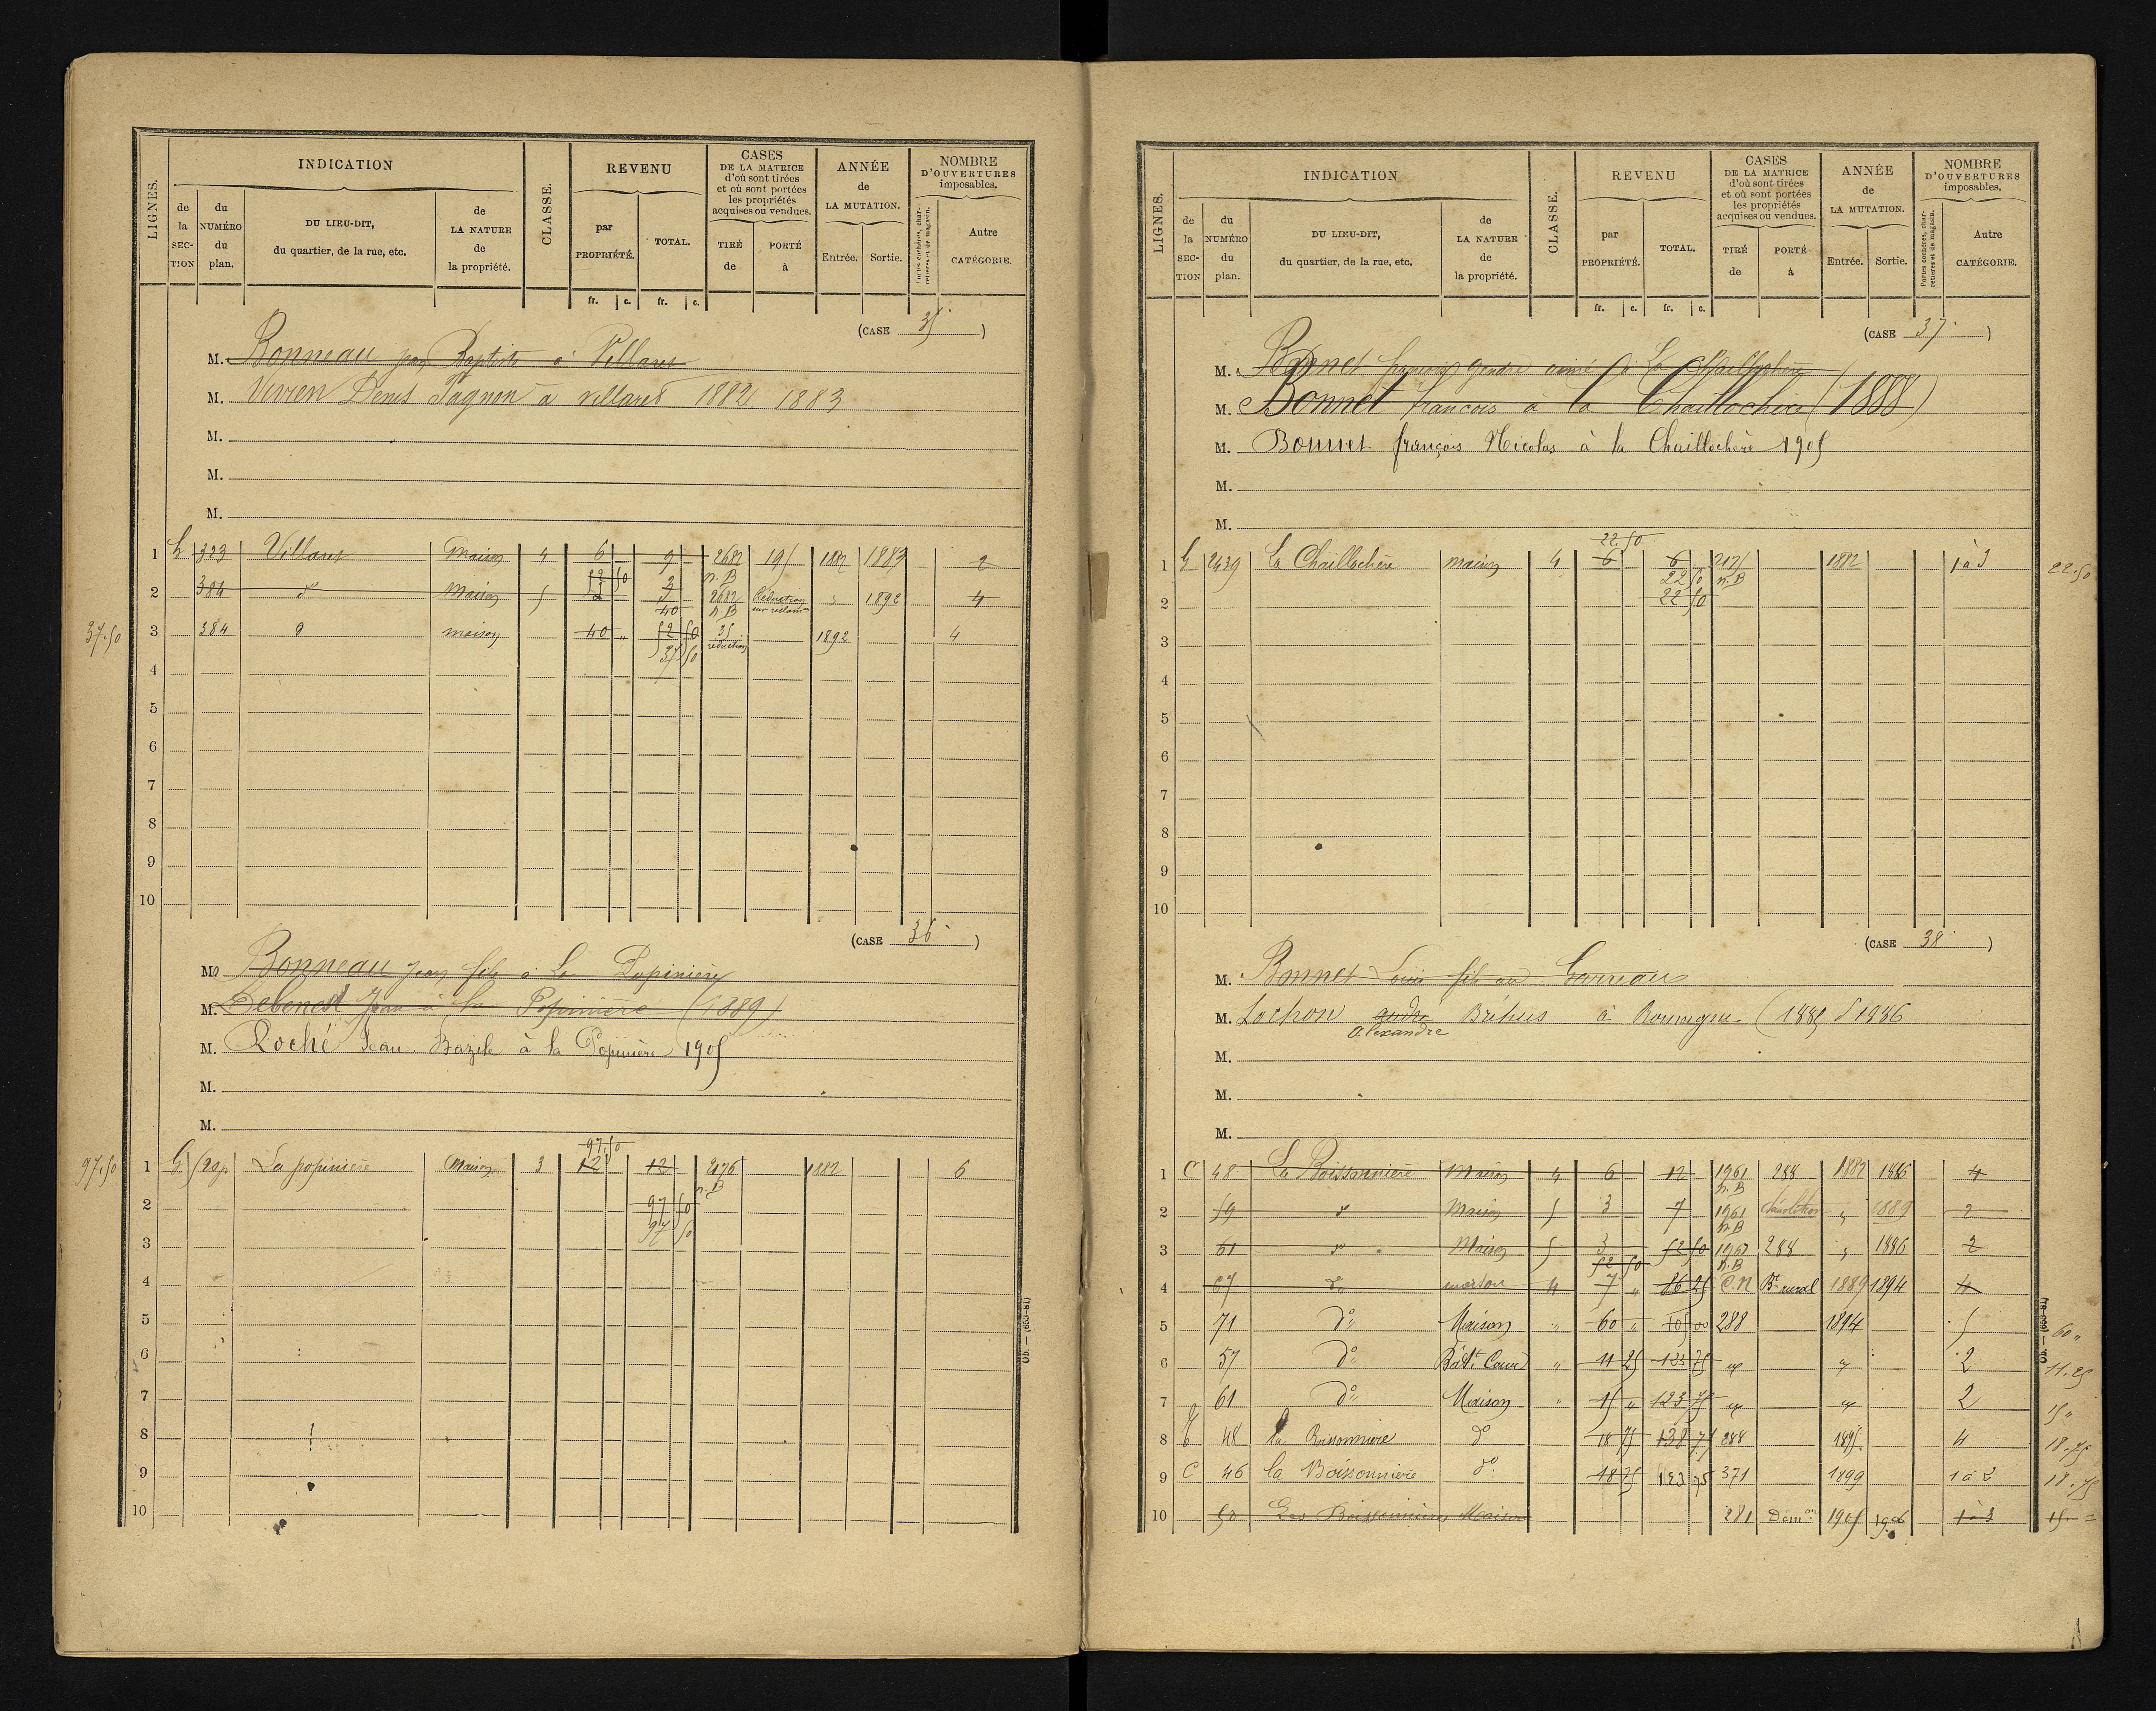 LIGNES.
INDICATION
de la SECTION
du NUMÉRO du plan.
DU LIEU-DIT, du quartier, de la rue, etc.
de LA NATURE de la propriété.
CLASSE.
REVENU
par PROPRIÉTÉ.
TOTAL.
fr. c. fr. c.
CASES DE LA MATRICE d'où sont tirées et où sont portées les propriétés acquises ou vendues.
TIRÉ de
PORTÉ à
ANNÉE de LA MUTATION.
Entrée. Sortie.
NOMBRE D'OUVERTURES imposables.
Portes cochères, charretières et de magasin.
Autre CATÉGORIE.
(CASE 35)
M. Bonneau jean Baptiste à Villaret
M. Vivien Denis Pagnon à villaret 1882 1883
M.
M.
M.
1 G 323 Villaret Maison 4 6 9 2682 n.B 195 1882 1883 2
2 384 do Maison 5 2682 n.B Réduction sur réclam 1892 4
37.50 3 384 d maison 40 " 52 50 35 réduction 1892 4
37 50
4
5
6
7
8
9
10
(CASE 36)
M. Bonneau Jean fils à La Papinière
M. Debenest Jean à la Popinière (1889)
M. Roché Jean Bazile à la Popinière 1905
M.
M.
97.50
97.50 1 G La popinière Maison 3 12 12 2176 n.B 1882 6
2 97 50
97 50
3
4
5
6
7
8
9
10
Ob. — (653-81)
LIGNES.
INDICATION
de la SECTION
du NUMÉRO du plan.
DU LIEU-DIT, du quartier, de la rue, etc.
de LA NATURE de la propriété.
CLASSE.
REVENU
par PROPRIÉTÉ.
TOTAL.
fr. c. fr. c.
CASES DE LA MATRICE d'où sont tirées et où sont portées les propriétés acquises ou vendues.
TIRÉ de
PORTÉ à
ANNÉE de LA MUTATION.
Entrée. Sortie.
NOMBRE D'OUVERTURES imposables.
Portes cochères, charretières et de magasin.
Autre CATÉGORIE.
(CASE 37)
M. Bonnet françois gendre aimé à La Chaillochère
M. Bonnet françois à la Chaillochère (1888)
M. Bonnet françois Nicolas à la Chaillochère 1905
M.
M.
22.50
1 G 2439 La Chaillochère maison 4 6 6 2175 n.B 1882 1 à 3 22.50
22 50
2 22 50
3
4
5
6
7
8
9
10
(CASE 38)
M. Bonnet Louis fils au Garreau
M. Lochon andré Bréhus à Rouvigne (1885) 1886
alexandre
M.
M.
M.
1 C 48 La Boissonnière Maison 4 6 12 1961 n.B 288 1882 1886 4
2 59 do Maison 5 3 7 1961 n.B Démolition " 1889 2
3 61 do Maison 5 3 52 50 1961 n.B 288 " 1886 2
52 50
4 67 do maison 4 7 " 86 25 C.N Bt rural 1889 1894 4
5 71 do Maison " 60 " 105 00 288 1894 5 60 "
6 57 do Bâtt Cour " 11 25 133 75 " " 2 11.25
7 61 do Maison " 15 " 123 75 " " 2 15 "
8 C 48 la Boissonnière do 18 75 138 75 288 1895 4 18.75
9 C 46 la Boissonnière do 18 75 123 75 371 1899 1 à 3 18.75
10 50 Les Boissonnières Maison 281 Démon 1905 1906 1 à 3 15 =
Ob. — (653-81)